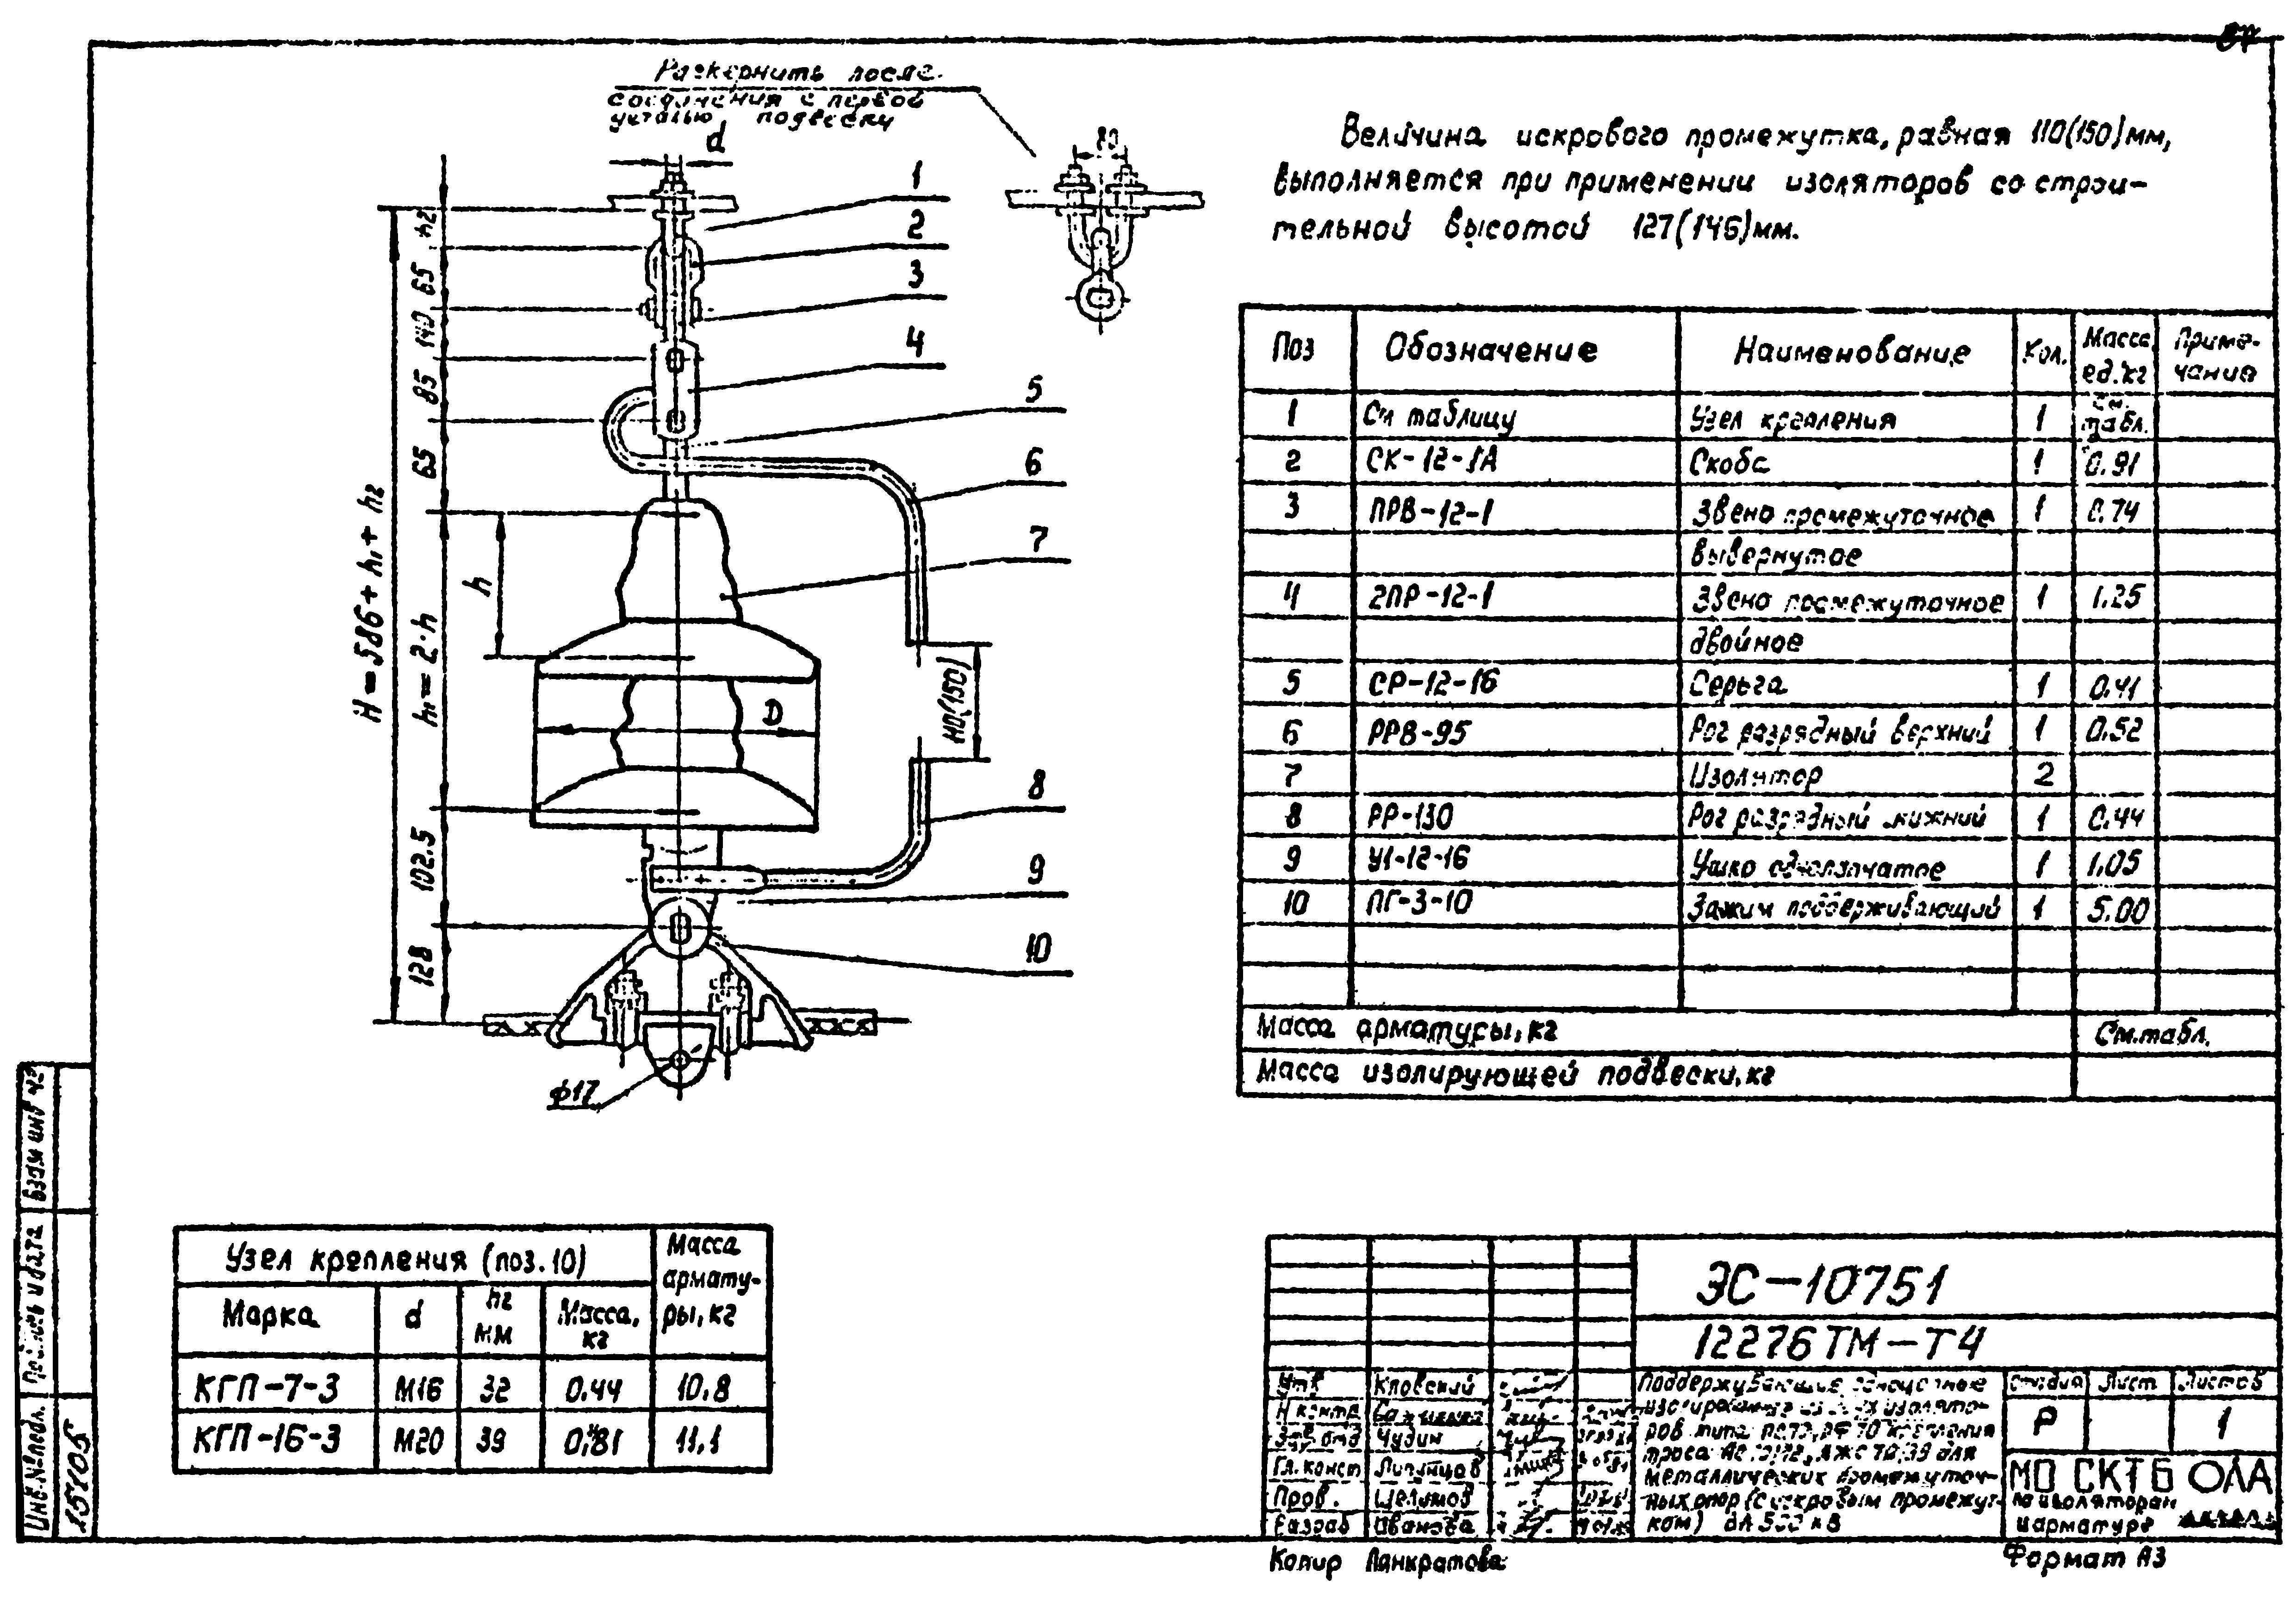 Раскернить после
соединения с первой
деталью подвески
d
80
1
2
3
4
5
6
7
8
9
10
h2
65
140
85
65
h
H = 586 + h1 + h2
h1 = 2·h
D
110(150)
102.5
128
ф17
Величина искрового промежутка, равная 110(150)мм,
выполняется при применении изоляторов со строи-
тельной высотой 127(146)мм.
Поз Обозначение Наименование Кол. Масса ед.,кг Приме-чание
1 См таблицу Узел крепления 1 См. табл.
2 СК-12-1А Скоба 1 0.91
3 ПРВ-12-1 Звено промежуточное 1 0.74
вывернутое
4 2ПР-12-1 Звено промежуточное 1 1.25
двойное
5 СР-12-16 Серьга 1 0.41
6 РРВ-95 Рог разрядный верхний 1 0.52
7 Изолятор 2
8 РР-130 Рог разрядный нижний 1 0.44
9 У1-12-16 Ушко однолапчатое 1 1.05
10 ПГ-3-10 Зажим поддерживающий 1 5.00
Масса арматуры, кг См. табл.
Масса изолирующей подвески, кг
Узел крепления (поз. 10) Масса армату-ры, кг
Марка d h2 мм Масса, кг
КГП-7-3 М16 32 0.44 10.8
КГП-16-3 М20 39 0.81 11.1
ЭС-10751
12276ТМ-Т4
Утв Кловский
Н.контр
Чудин
Гл. конст Липунцов
Пров. Щелимов
Разраб Иванова
Поддерживающие одноцепные
крепления
троса для
металлических промежуточ-
ных опор (с искровым промежут-
ком) ВЛ 500 кВ
Стадия Лист Листов
Р 1
МО СКТБ ОЛА
по изоляторам
и арматуре
Копир Панкратова
Формат А3
Взам инв №
Подпись и дата
Инв. № подл.
15705